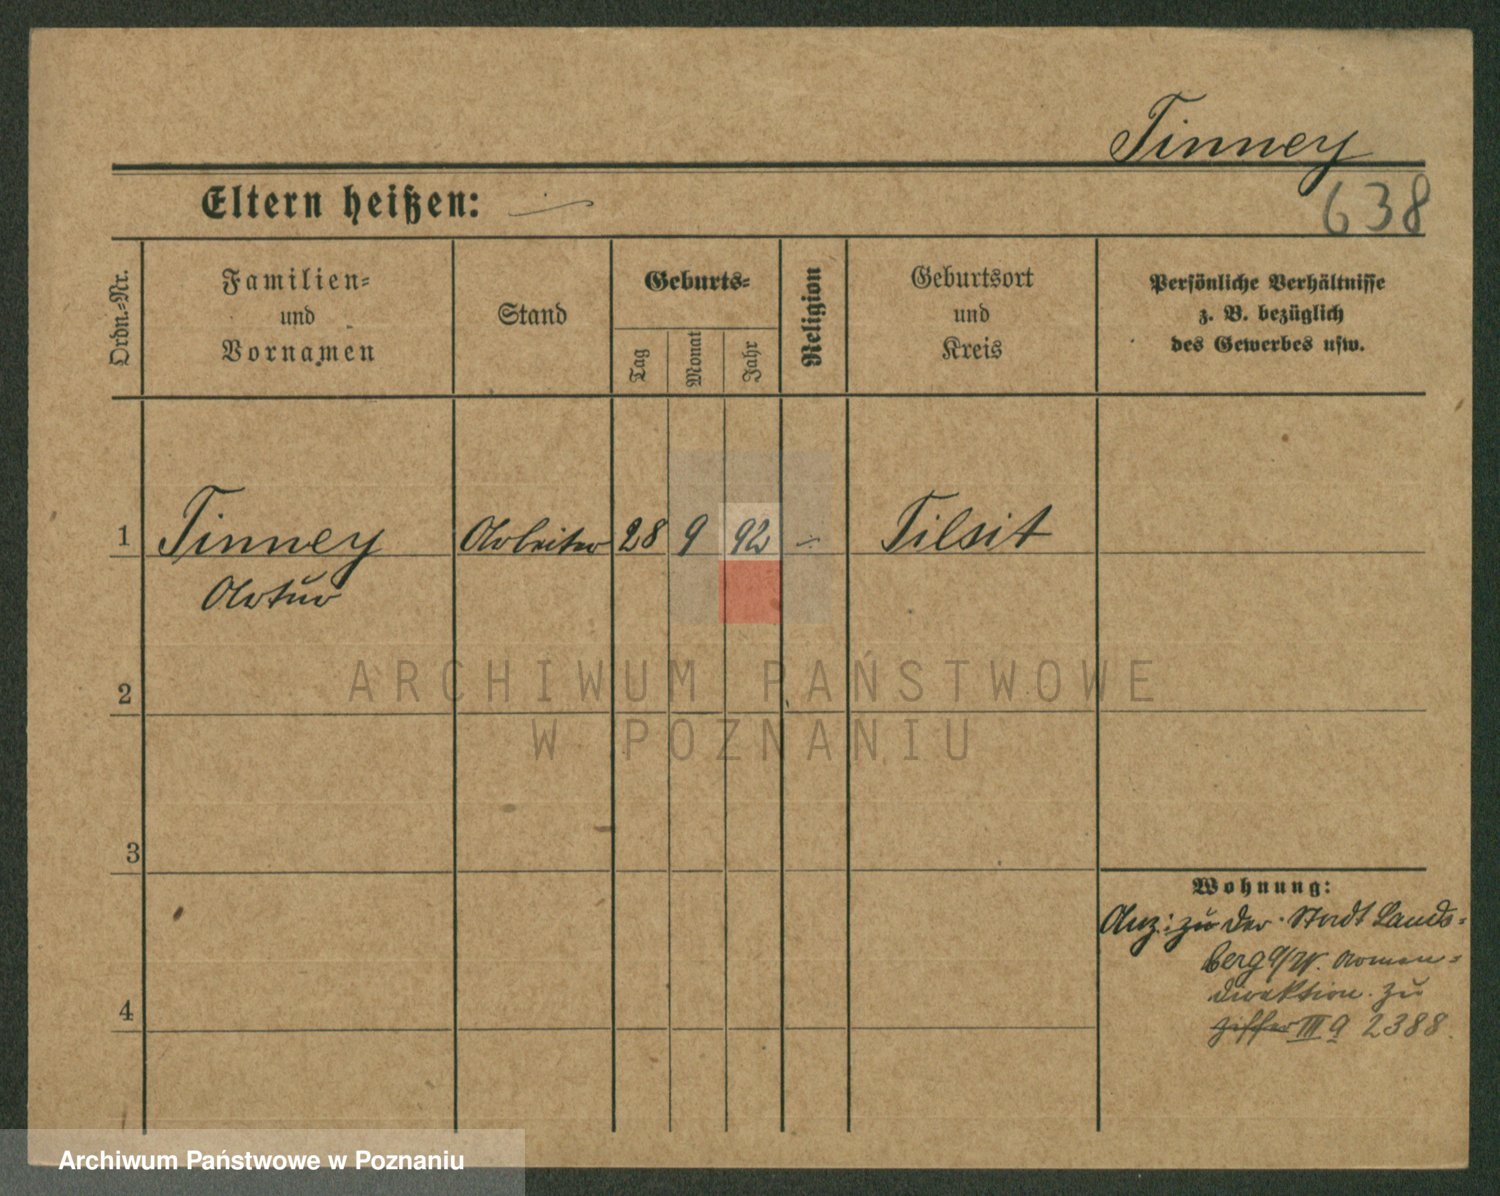 Tinney
638
Eltern heißen: —
Ordn.-Nr.
Familien-
und
Vornamen
Stand
Geburts-
Tag
Monat
Jahr
Religion
Geburtsort
und
Kreis
Persönliche Verhältnisse
z. B. bezüglich
des Gewerbes usw.
1 Tinney Arbeiter 28 9 92 - Tilsit
Artur
ARCHIWUM PAŃSTWOWE
2
W POZNANIU
3
Wohnung:
Anz: zu der Stadt Lands-
berg a/W. Armen-
direktion zu
Ziffer III a 2388.
4
Archiwum Państwowe w Poznaniu